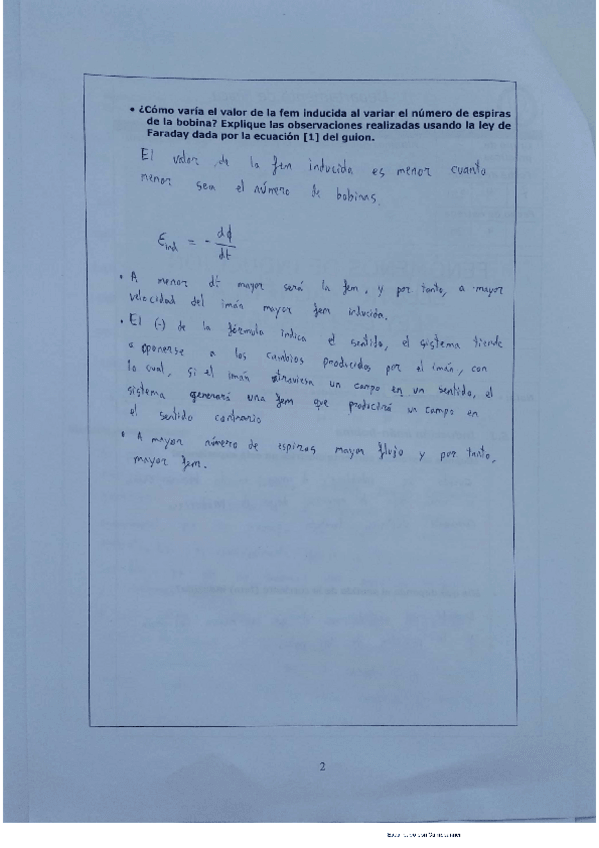 • ¿Cómo varía el valor de la fem inducida al variar el número de espiras
de la bobina? Explique las observaciones realizadas usando la ley de
Faraday dada por la ecuación [1] del guion.
El valor de la fem inducida es menor cuanto
menor sea el número de bobinas.
ε_ind = - dϕ/dt
• A menor dt mayor será la fem, y por tanto, a mayor
velocidad del imán mayor fem inducida.
• El (-) de la fórmula indica el sentido, el sistema tiende
a oponerse a los cambios producidos por el imán, con
lo cual, si el imán atraviesa un campo en un sentido, el
sistema generará una fem que producirá un campo en
el sentido contrario
• A mayor número de espiras mayor flujo y por tanto,
mayor fem.
2